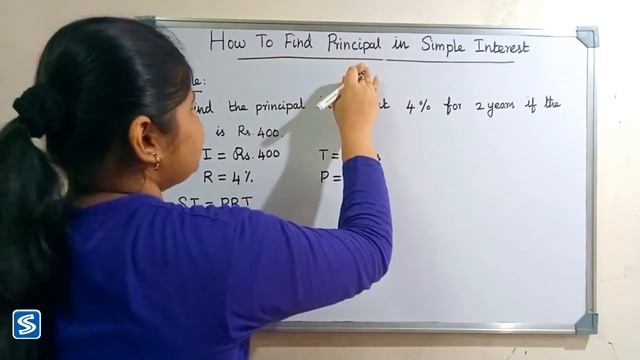 How To Find Principal in Simple Interest
find the principal 4% for 2 years if the
is Rs. 400.
I = Rs. 400 T =
R = 4% P =
SI = PRT
S